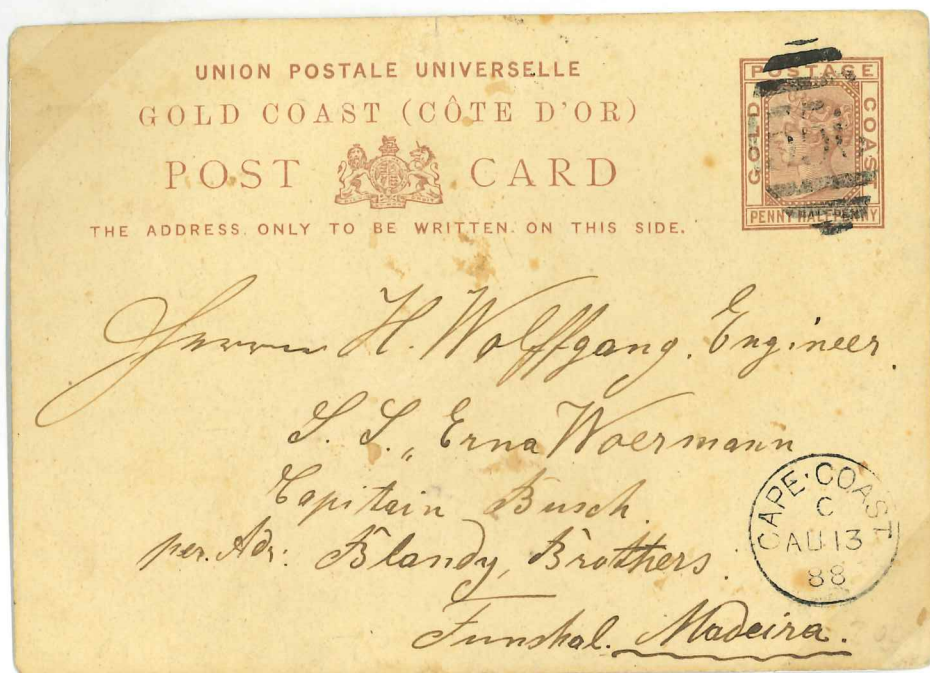 UNION POSTALE UNIVERSELLE
GOLD COAST (CÔTE D'OR)
POST CARD
THE ADDRESS ONLY TO BE WRITTEN ON THIS SIDE.
POSTAGE
GOLD
COAST
PENNY HALFPENNY
Herrn H. Wolffgang. Engineer.
S. S. „Erna Woermann
Capitain Busch.
per. Adr: Blandy, Brothers.
Funchal. Madeira.
CAPE·COAST
C
AU 13
88